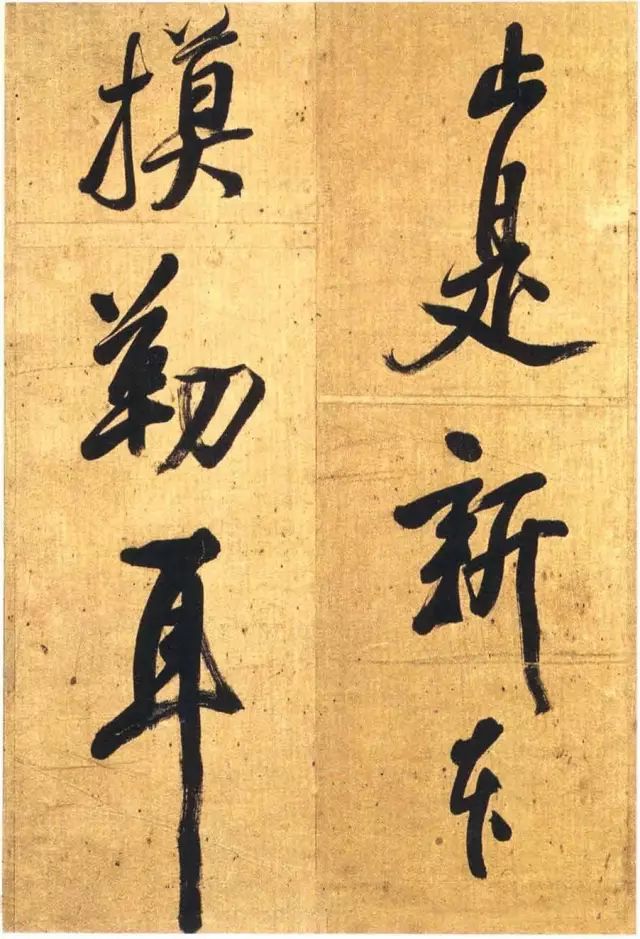 止是新本
摸勒耳